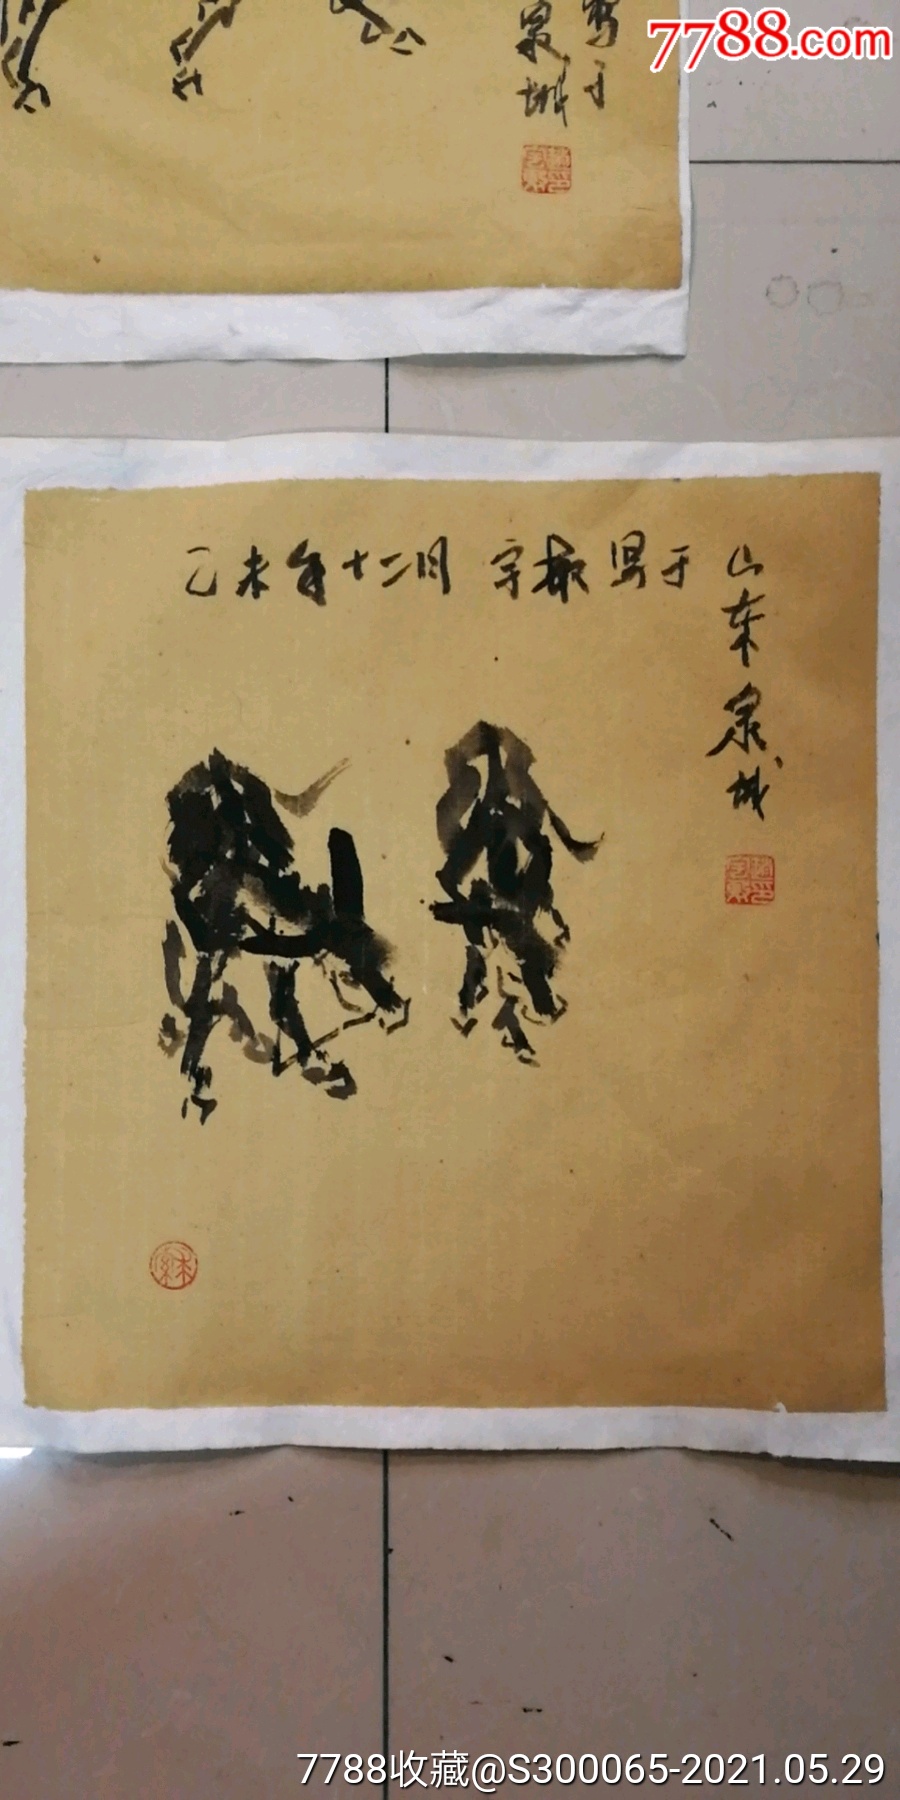 7788.com
写于
泉城
乙未年十二月 宗敏写于
山东泉城
7788收藏@S300065-2021.05.29